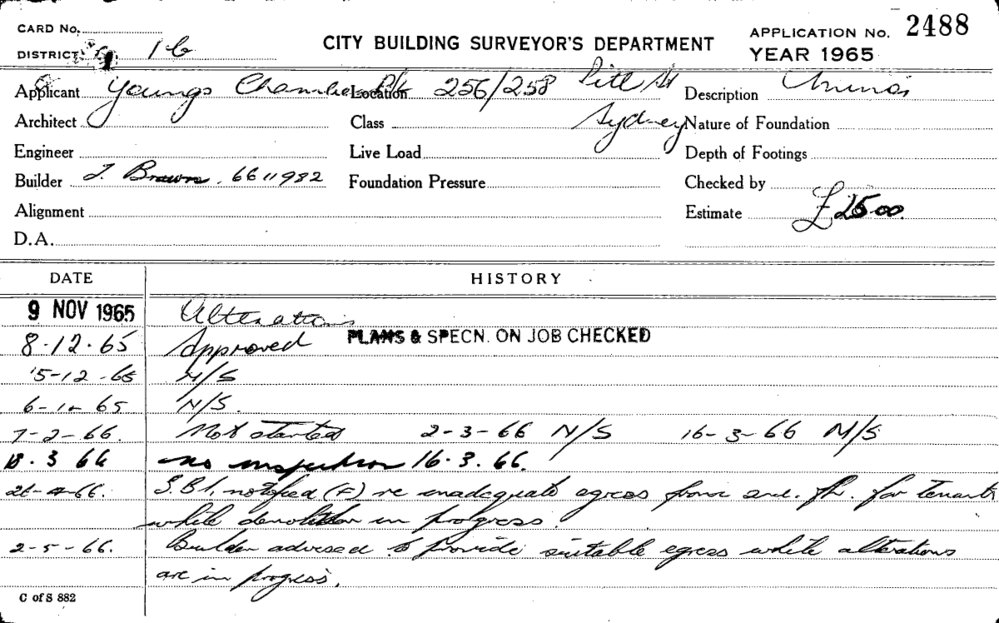 CARD No.
DISTRICT 1b
CITY BUILDING SURVEYOR'S DEPARTMENT
APPLICATION No. 2488
YEAR 1965
Applicant Youngs Chambers P/L Location 256/258 Pitt St Description
Architect Class Sydney Nature of Foundation
Engineer Live Load Depth of Footings
Builder J. Brown. 6611982 Foundation Pressure Checked by
Alignment Estimate £
D.A.
DATE HISTORY
9 NOV 1965 Alterations
8.12.65 Approved PLANS & SPECN. ON JOB CHECKED
15-12-65 N/S
N/S.
7-2-66. Not started 2-3-66 N/S 16-3-66 N/S
18.3 66 no inspection 16.3.66.
notified (F) re inadequate egress from for tenants
while demolition in progress.
2-5-66. Builder advised to provide suitable egress while alterations
are in progress.
C of S 882